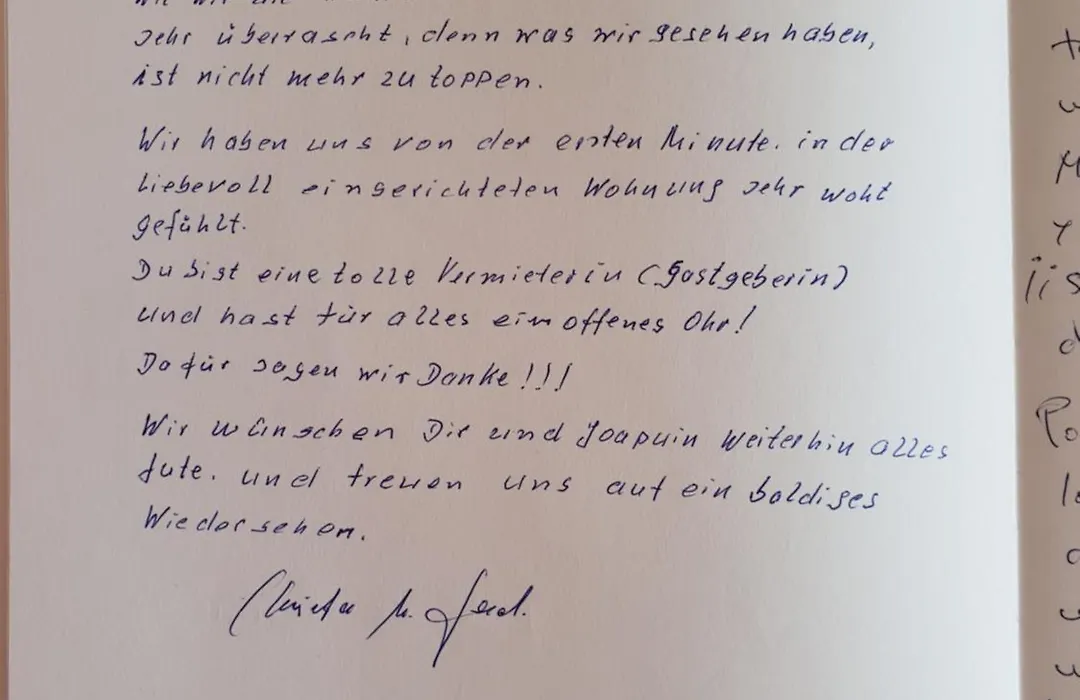 sehr überrascht, denn was wir gesehen haben,
ist nicht mehr zu toppen.
Wir haben uns von der ersten Minute. in der
liebevoll eingerichteten Wohnung sehr wohl
gefühlt.
Du bist eine tolle Vermieterin (Gastgeberin)
und hast für alles ein offenes Ohr!
Dafür sagen wir Danke!!!
Wir wünschen Dir und Joaquin weiterhin alles
Gute. und freuen uns auf ein baldiges
Wiedersehen.